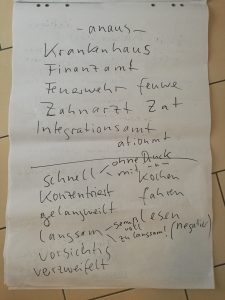 Krankenhaus
Finanzamt
Feuerwehr
Zahnarzt Zat
Integrationsamt
schnell ohne Druck
mit kochen
Konzentriert fahren
gelangweilt
langsam lesen
zu langsam! (negativ)
vorsichtig
verzweifelt